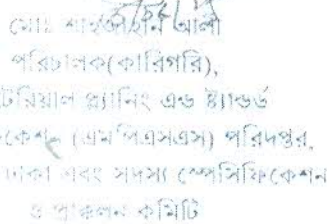 মোঃ শাহজাহান আলী
পরিচালক(কারিগরি),
টেরিয়াল প্ল্যানিং এন্ড ষ্ট্যান্ডার্ড
কেশন (এমপিএসএস) পরিদপ্তর,
ঢাকা এবং সদস্য স্পেসিফিকেশন
ও প্রাক্কলন কমিটি